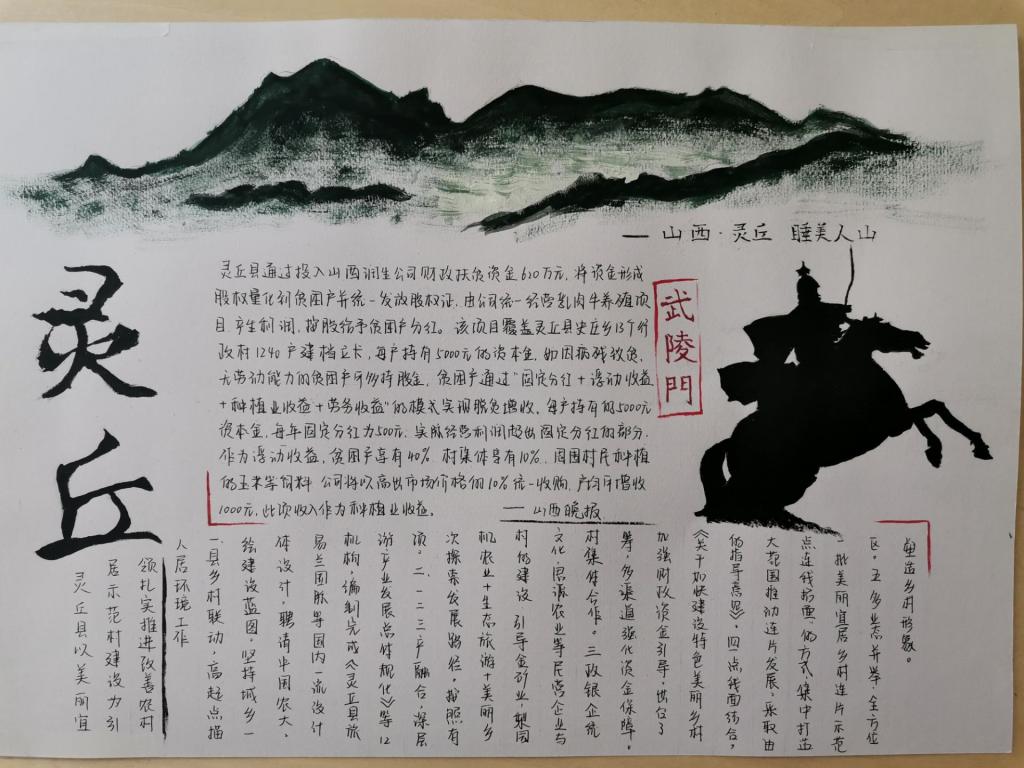 灵丘
山西·灵丘 睡美人山
武陵門
灵丘县通过投入山西润生公司财政扶贫资金620万元,将资金形成
股权量化到贫困户并统一发放股权证,由公司统一经营乳肉牛养殖项
目,产生利润,按股给予贫困户分红。该项目覆盖灵丘县史庄乡13个行
政村1240户建档立卡,每户持有5000元的资本金,如因病残致贫,
无劳动能力的贫困户可多持股金,贫困户通过“固定分红+浮动收益
+种植业收益+劳务收益”的模式实现脱贫增收,每户持有的5000元
资本金,每年固定分红为500元,实际经营利润超出固定分红的部分,
作为浮动收益,贫困户享有40%,村集体享有10%,周围村民种植
的玉米等饲料,公司将以高出市场价格的10%统一收购,户均可增收
1000元,此项收入作为种植业收益。
——山西晚报
灵丘县以美丽宜
居示范村建设力引
领扎实推进改善农村
人居环境工作
一县乡村联动,高起点描
绘建设蓝图。坚持城乡一
体设计,聘请中国农大、
易兰国脉等国内一流设计
机构,编制完成《灵丘县旅
游产业发展总体规化》等12
项。二、一二三产融合,深层
次探索发展路径。按照有
机农业+生态旅游+美丽乡
村的建设,引导金矿业,梨园
文化,思源农业等民营企业与
村集体合作。三政银企统
筹,多渠道强化资金保障。
加强财政资金引导,出台了
《关于加快建设特色美丽乡村
的指导意见》,四点线面结合,
大范围推动连片发展,采取由
点连线拓面,的方式集中打造
一批美丽宜居乡村连片示范
区。五多业态并举,全方位
塑造乡村形象。